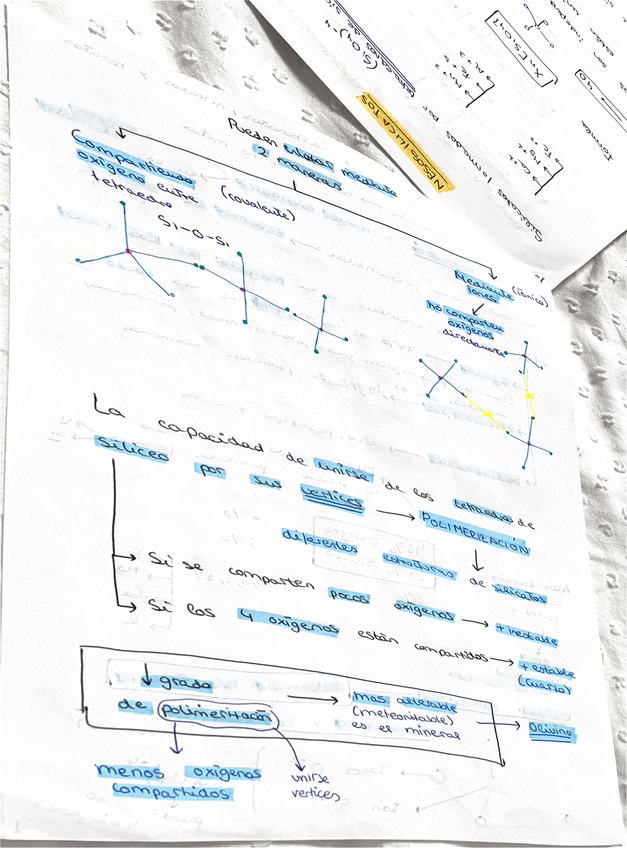 Pueden unirse mediante
2 maneras
Compartiendo
oxígeno entre
tetraedro
(covalente)
Si-O-Si
Mediante
Iones
(iónico)
no comparten
oxígenos
directamente
La capacidad de unirse de los tetraedros de
silíceo por sus vertices → POLIMERIZACIÓN
diferentes estructuras de silicatos
Si se comparten pocos oxígenos → + inestable
Si los 4 oxígenos están compartidos → + estable
(cuarzo)
↓ grado
de polimerización → mas alterable
(meteorizable)
es el mineral → Olivino
menos oxígenos
compartidos
unirse
vertices
NESOSILICATOS
Silicatos formados por
tetraedros de
(SiO4)4-
Formen